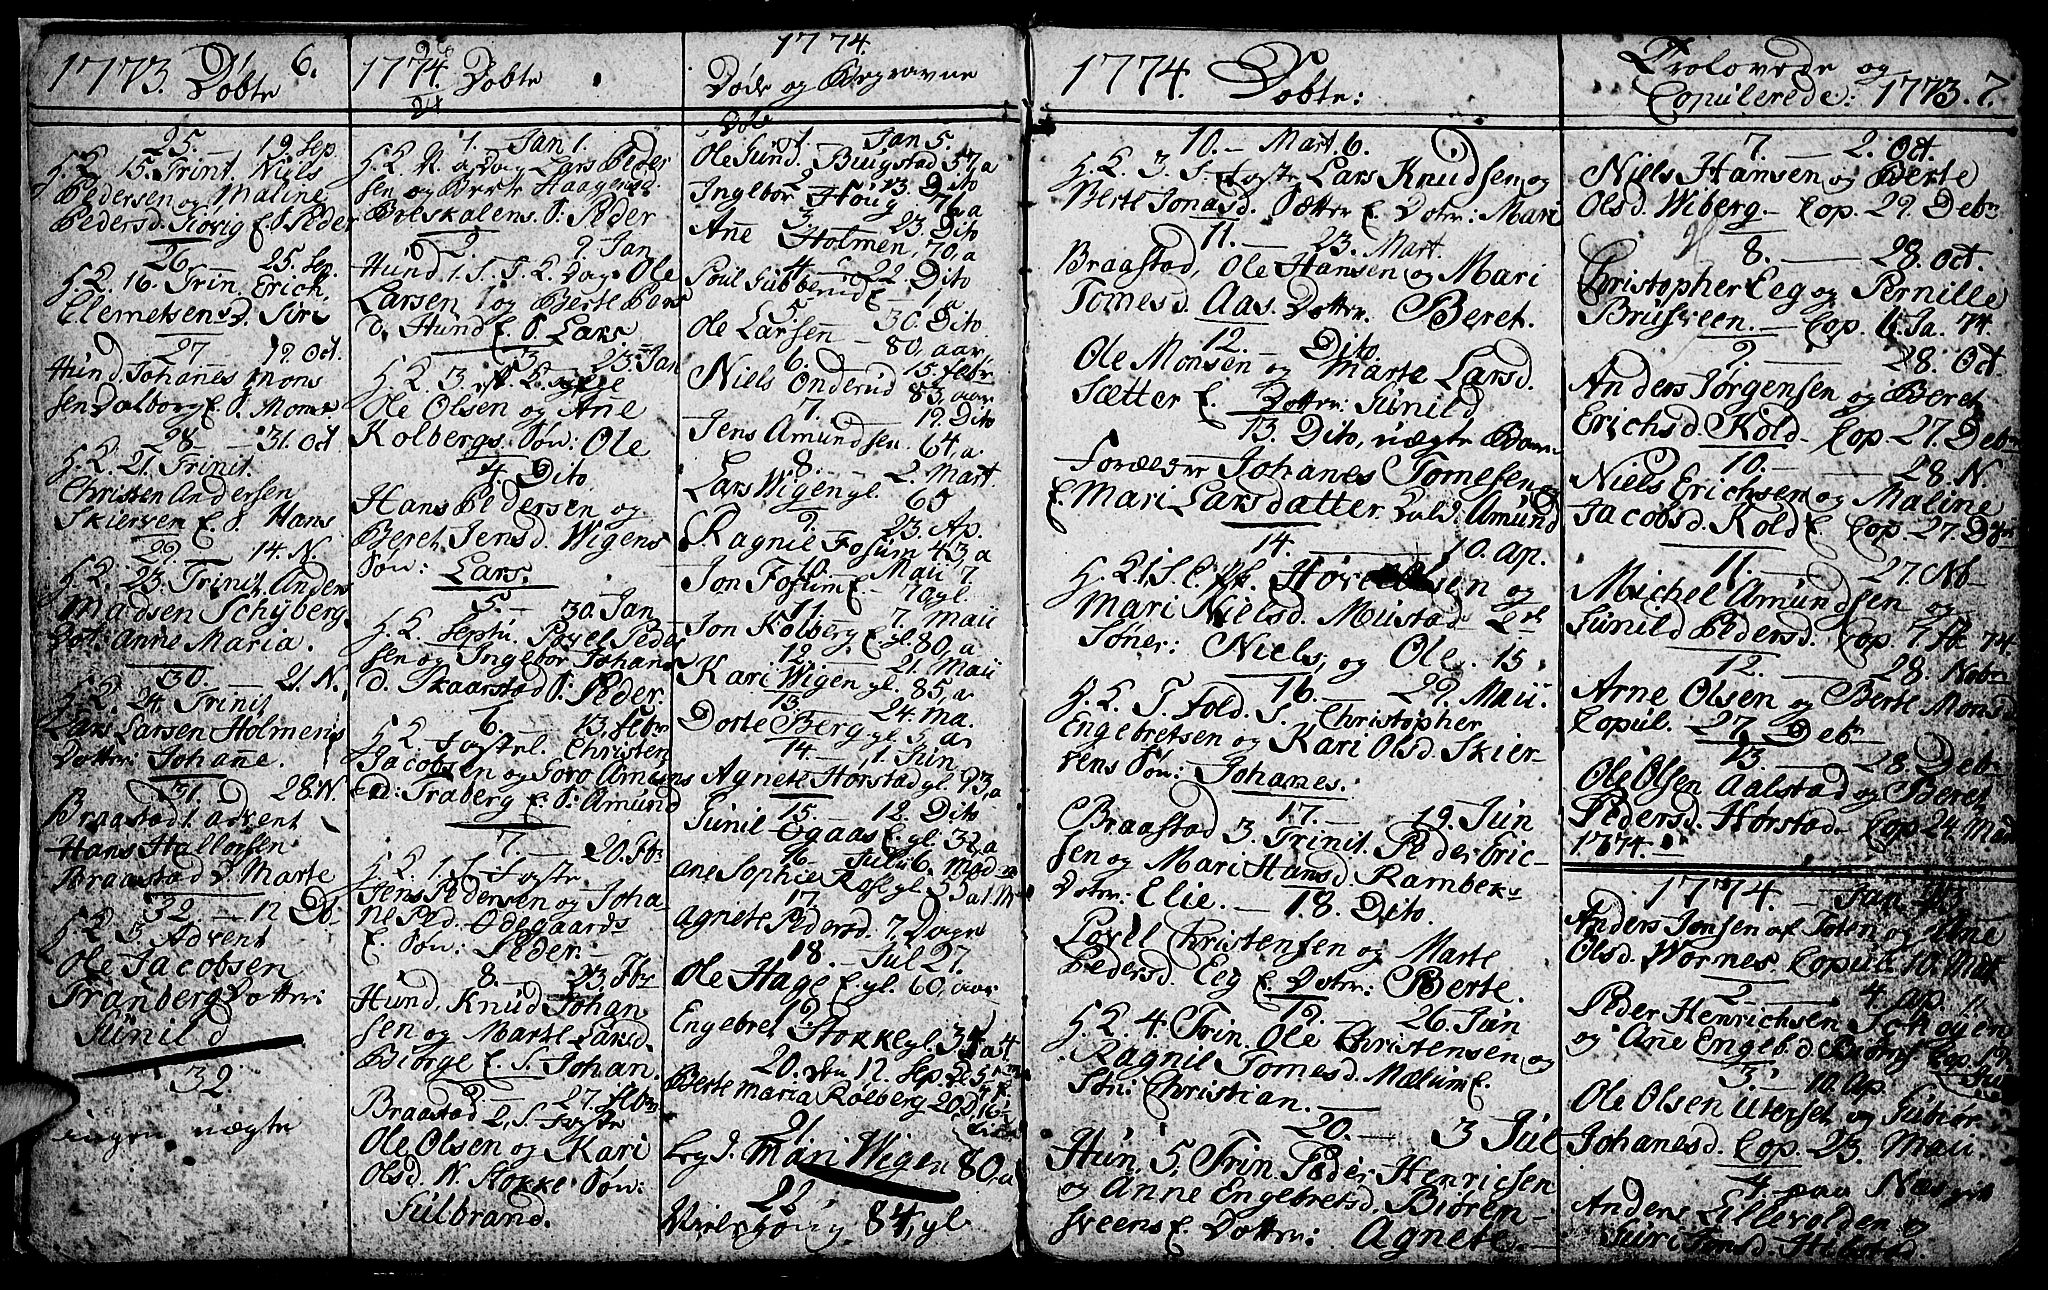 1773. Döbte 6.
25. — 19. Sep.
H. L. 15. Trinit. Niels
Pedersen og Maline
Pedersd. Hovig E. S. Peder
26. — 25. Sep.
H. L. 16. Trin. Erich
Clemetsens D. Siri
27. — 19. Oct.
Hund. Johan̄es Mons
sen Dalborg E. S. Mons
28. — 31. Oct
H. L. 21. Trinit.
Christen Andersen
Skierven E. S. Hans
29. — 14. N.
H. L. 23. Trinit. Anders
Madsen Schyberg.
Dot: Anne Maria.
30. — 21. N.
H. L. 24. Trinit
Lars Larsen Holmens
Dotter: Johan̄e.
31. 28. N.
Braastad 1. advent
Hans Hallorsen
Braastad D. Marte
32. — 12 Db
H. L. 3. Advent
Ole Jacobsen
Tranberg Dotter:
Sünild
32.
ingen uægte
1774. Döbte
1. Jan 1.
H. L. N. aarsdag Lars Peder
sen og Berte Haagensd.
Bolskalens S. Peder
2. — 9. Jan
Hund. 1. S. E. Ole
Larsen og Berte Lars
d. Hund E. S. Lars.
3. 23. Jan
H. L. 3.
Ole Olsen og An̄e
Kolbergs Søn: Ole
4. Dito
Hans Pedersen og
Beret Jensd. Wigens
Søn: Lars.
5. — 30. Jan
H. L. Septu. Povel Peder
sen og Ingebor Johans
d. Skaarstad S. Peder.
6. — 13. febr
H. L. fastel. Christen
Jacobsen og Goro Amuns
d: Traberg E. S. Amünd
7. — 20. Fbr
H. L. 1. S. i faste
Jens Pedersen og Joha-
ne Ped. Ødegaards
E. Søn: Peder.
8. — 23. Fbr
Hund. Knud Johan
sen og Marte Larsd.
Biørge E. S. Johan.
9. — 27. febr
Braastad 2. S. i faste
Ole Olsen og Kari
Olsd. N. Stokke Søn:
Gulbrand.
1774.
Döde og Begravne
1. Jan 5.
Ole Sünd. Bugstad 57, a
2. 13. Dito
Ingebor Houg. 76 a
3. 23. Dito
An̄e Holmen, 70, a
4. — 22. Dito
Poul Subberud E — 1 a
5. — 30. Dito
Ole Larsen — 80, aar,
6. — 15. febr
Niels Onderud 83, aar
7. — 19. Dito
Jens Amundsen 64, a.
8. — 2. Mart
Lars Wigen gl. 60
9. 23. Ap.
Ragnil Fosum 43, a
10. Maii 7.
Jon Fosum E. — 1 a gl.
11. 7. Maii
Jon Kolberg E. gl. 80, a
12. — 21. Maii
Kari Wigen gl. 85, a
13. — 24. Ma.
Dorte Berg gl. 5 a
14. — 1. Jun
Agnete Horstad gl. 93, a
15. — 12. Dito
Sunil Egaas E. gl. 32, a
16. Juli 6.
Ane Sophie Rose gl.
17.
Agnete Pedersd. 7, Dage
18. — Jul 27.
Ole Hage E. gl. 60, aar
19.
Engebret Stokke gl. 34 a
20. den 12. Sep.
Berte Maria Kolberg 20
21.
Leg d. Mari Wigen 80, a
22.
84, gl.
1774. Döbte:
10. — Mart. 6.
H. L. 3. S. i faste Lars Knudsen og
Berte Jonasd. Sætter E. Dotr: Mari
11. — 23. Mart.
Braastad, Ole Hansen og Mari
Tomesd. Aas. Dotter. Beret.
12. — Dito
Ole Monsen og Marte Larsd.
Sætter E. Dotter: Sünild
13. Dito, uægte Barn
Forældre Johanes Tomesen
E. Mari Larsdatter kald. Amünd
14. — 10. Ap.
H. L. 1. S. E. Pk. Hovel Olsen og
Mari Nielsd. Müstad
Søner: Niels, og Ole. 15.
16. — 29. Maii.
H. L. T. fold. S. Christopher
Engebretsen og Kari Olsd. Skier-
vens Søn: Johanes.
17. — 19. Jün
Braastad 3. Trinit. Peder Eric-
sen og Mari Hansd. Rambek
Dotter: Elie. — 18. Dito.
Povel Christensen og Marte
Pedersd. Eeg E. Dotr: Berte.
19. — 26. Jün
H. L. 4. Trin. Ole Christensen og
Ragnil Tomesd. Mælum E.
Søn: Christian. —
20. — 3 Jül
Hün. 5. Trin. Peder Henricsen
og Anne Engebretsd. Biørn-
sveens E. Dotter: Agnete. —
Trolovede og
Copulerede: 1773. 7.
7. — 2. Oct.
Niels Hansen og Berte
Olsd. Wiberg. — Cop. 29. Debr
8. — 28. Oct.
Christopher Eeg og Pernille
Brüsveen. — Cop. 11. Ja. 74.
9. — 28. Oct.
Anders Jørgensen og Beret
Erichsd Kold. Cop. 27. Debr
10. — 28. N.
Niels Erichsen og Maline
Jacobsd. Kold E. Cop. 27. Dbr
11. — 27. Nb
Michel Amundsen og
Sünild Pedersd. Cop. 7. fb 74.
12. — 28. Nobr
Arne Olsen og Berte Monsd
Copul. 27. Debr
13. — 28. Debr
Ole Olsen Aalstad og Beret
Pedersd. Horstad. Cop 24. Mart
1774.
1774. Jan
Anders Jonsen af Toten og An̄e
Olsd. Wornes. Copul. 10. Mai
2. — 4. ap.
Peder Henrichsen Schogen
og Ane Engeb.d Cop. 19.
3. — 10. Ap.
Ole Olsen Uterset og Gubiør
Johanesd. Cop. 23. Maii.
4. paa Næsgrd
Anders Lillevolden og
Siuri Jensd. Hilstad.